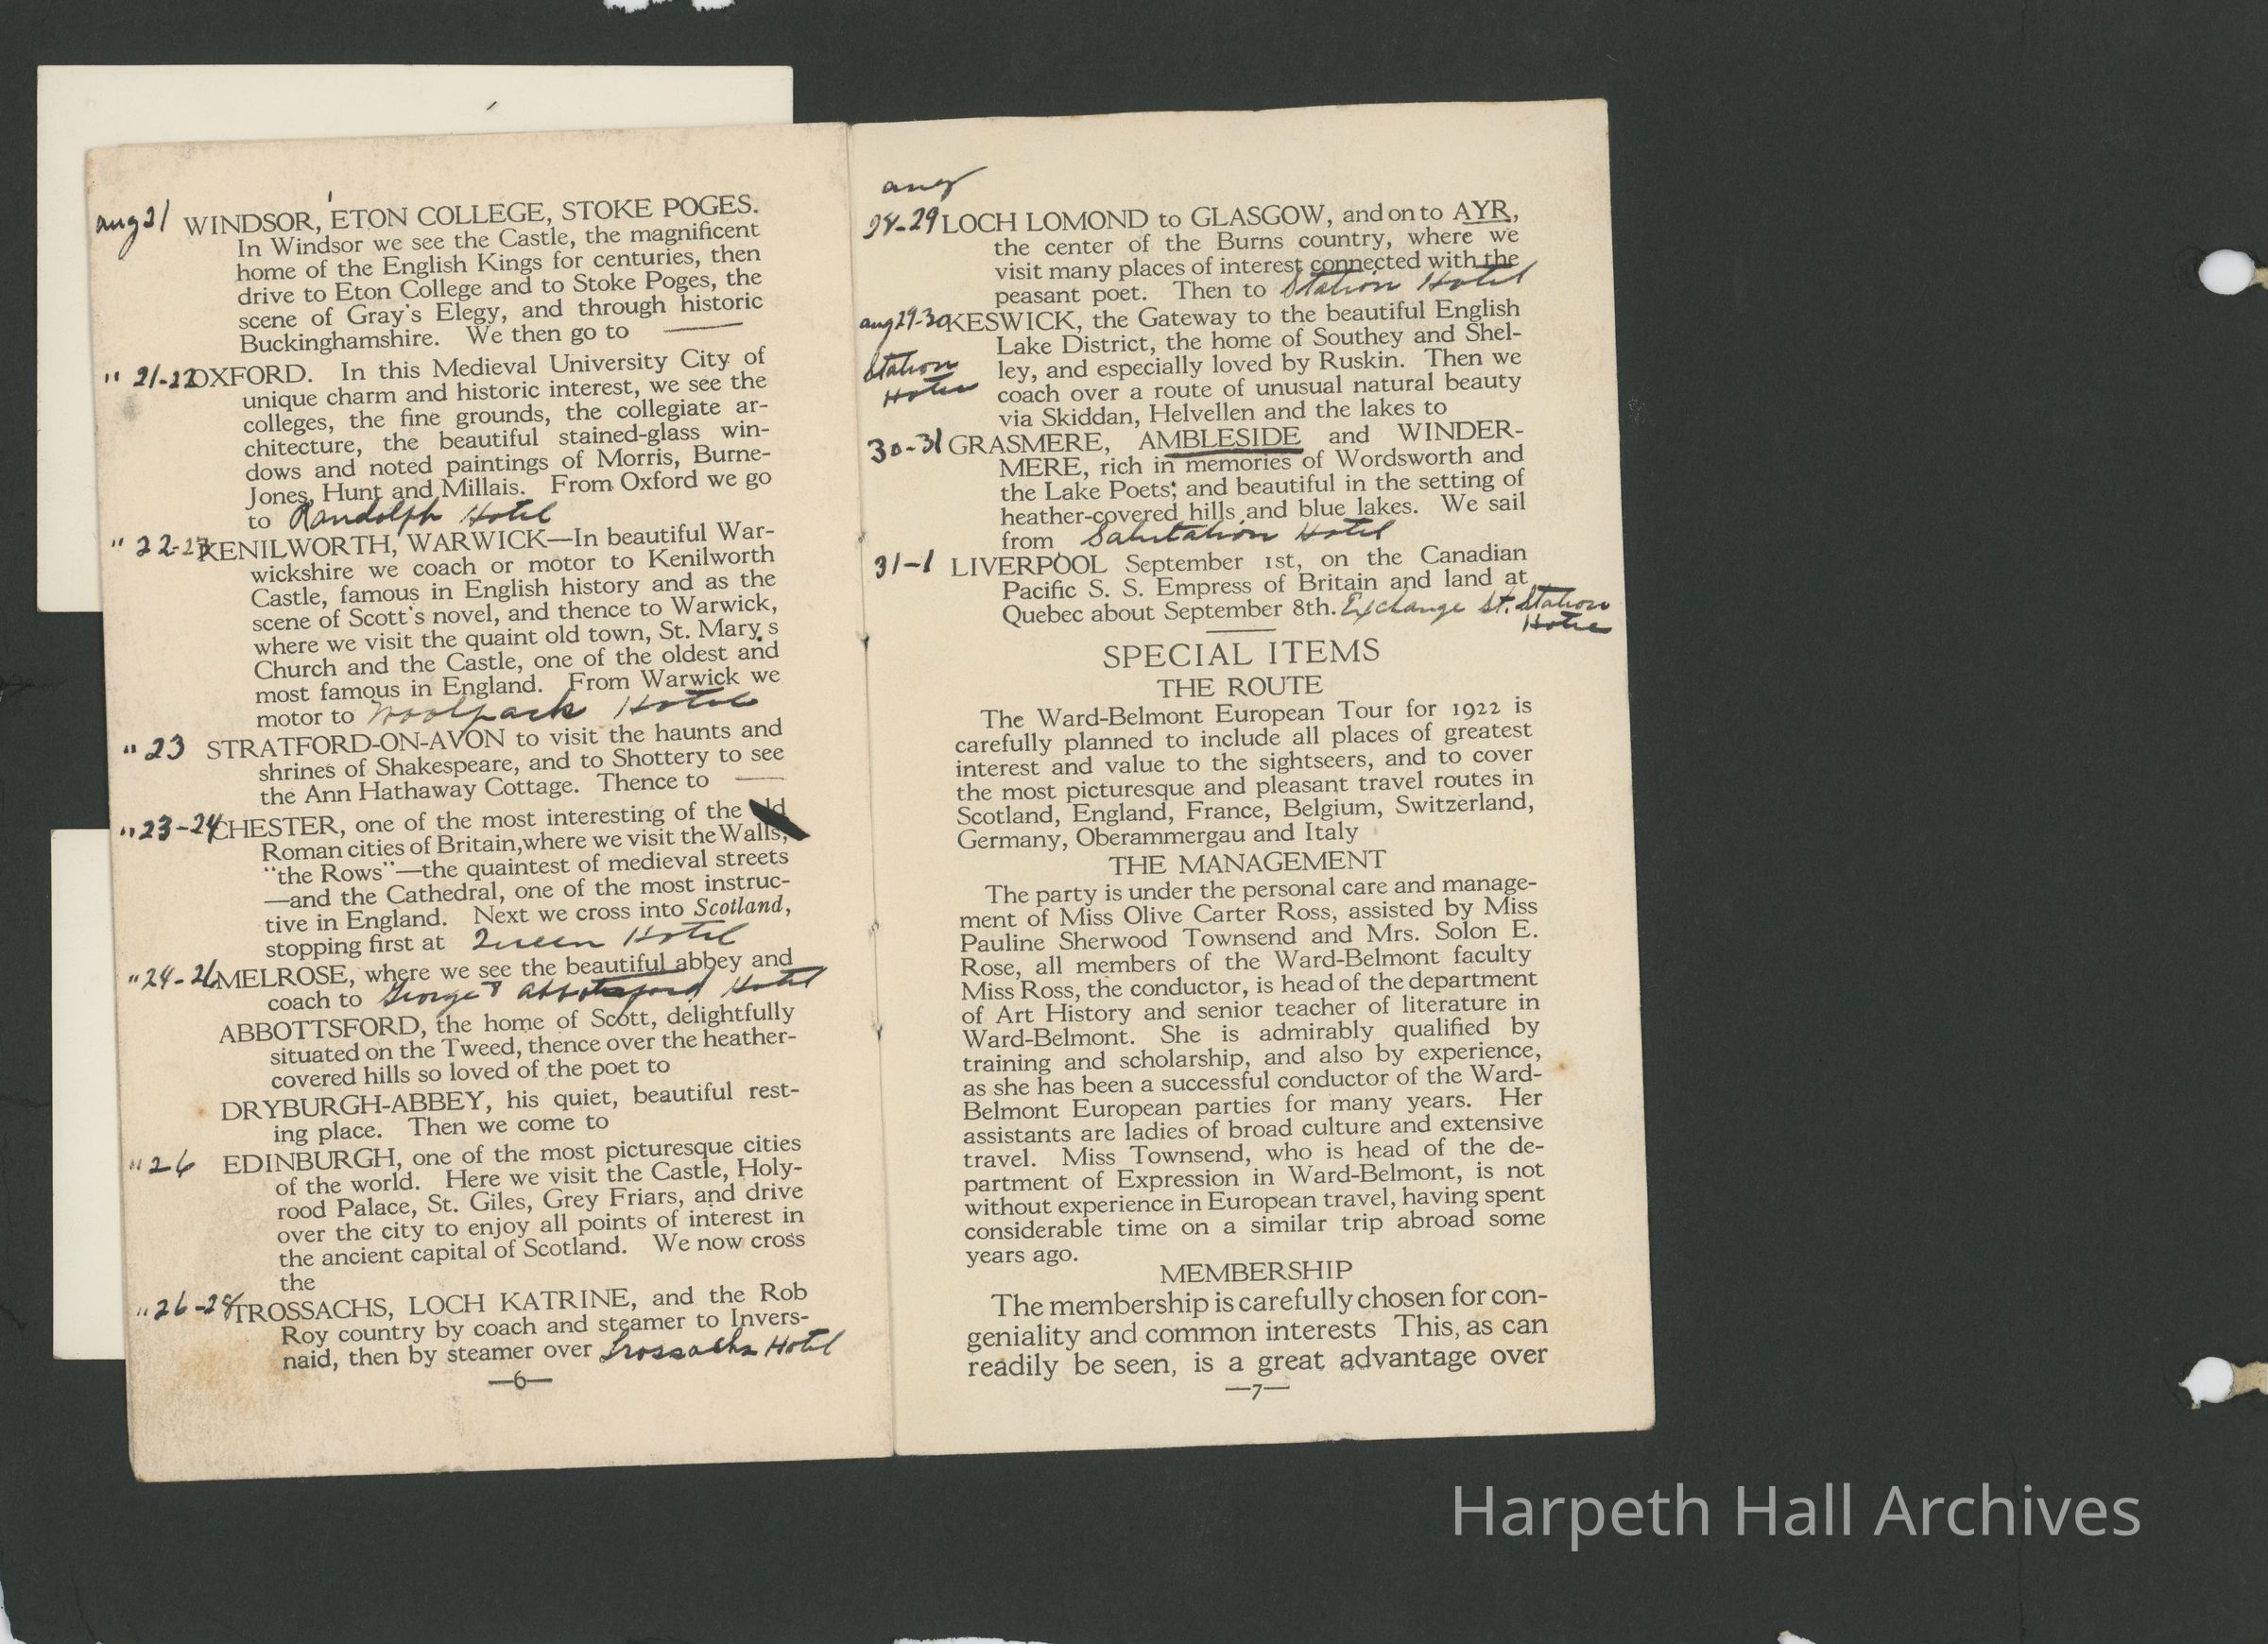 aug 21 WINDSOR, ETON COLLEGE, STOKE POGES.
In Windsor we see the Castle, the magnificent
home of the English Kings for centuries, then
drive to Eton College and to Stoke Poges, the
scene of Gray's Elegy, and through historic
Buckinghamshire. We then go to ———
" 21-22 OXFORD. In this Medieval University City of
unique charm and historic interest, we see the
colleges, the fine grounds, the collegiate ar-
chitecture, the beautiful stained-glass win-
dows and noted paintings of Morris, Burne-
Jones, Hunt and Millais. From Oxford we go
to Randolph Hotel
" 22-23 KENILWORTH, WARWICK—In beautiful War-
wickshire we coach or motor to Kenilworth
Castle, famous in English history and as the
scene of Scott's novel, and thence to Warwick,
where we visit the quaint old town, St. Mary's
Church and the Castle, one of the oldest and
most famous in England. From Warwick we
motor to Woolpack Hotel
" 23 STRATFORD-ON-AVON to visit the haunts and
shrines of Shakespeare, and to Shottery to see
the Ann Hathaway Cottage. Thence to ———
" 23-24 CHESTER, one of the most interesting of the old
Roman cities of Britain, where we visit the Walls,
"the Rows"—the quaintest of medieval streets
—and the Cathedral, one of the most instruc-
tive in England. Next we cross into Scotland,
stopping first at Queen Hotel
" 24-26 MELROSE, where we see the beautiful abbey and
coach to George & Abbotsford Hotel
ABBOTTSFORD, the home of Scott, delightfully
situated on the Tweed, thence over the heather-
covered hills so loved of the poet to
DRYBURGH-ABBEY, his quiet, beautiful rest-
ing place. Then we come to
" 26 EDINBURGH, one of the most picturesque cities
of the world. Here we visit the Castle, Holy-
rood Palace, St. Giles, Grey Friars, and drive
over the city to enjoy all points of interest in
the ancient capital of Scotland. We now cross
the
" 26-28 TROSSACHS, LOCH KATRINE, and the Rob
Roy country by coach and steamer to Invers-
naid, then by steamer over Trossachs Hotel
—6—
aug
28-29 LOCH LOMOND to GLASGOW, and on to AYR,
the center of the Burns country, where we
visit many places of interest connected with the
peasant poet. Then to Station Hotel
aug 29-30 KESWICK, the Gateway to the beautiful English
Lake District, the home of Southey and Shel-
Station ley, and especially loved by Ruskin. Then we
Hotel coach over a route of unusual natural beauty
via Skiddan, Helvellen and the lakes to
30-31 GRASMERE, AMBLESIDE and WINDER-
MERE, rich in memories of Wordsworth and
the Lake Poets; and beautiful in the setting of
heather-covered hills and blue lakes. We sail
from Salutation Hotel
31-1 LIVERPOOL September 1st, on the Canadian
Pacific S. S. Empress of Britain and land at
Quebec about September 8th. Exchange St. Station
Hotel
SPECIAL ITEMS
THE ROUTE
The Ward-Belmont European Tour for 1922 is
carefully planned to include all places of greatest
interest and value to the sightseers, and to cover
the most picturesque and pleasant travel routes in
Scotland, England, France, Belgium, Switzerland,
Germany, Oberammergau and Italy
THE MANAGEMENT
The party is under the personal care and manage-
ment of Miss Olive Carter Ross, assisted by Miss
Pauline Sherwood Townsend and Mrs. Solon E.
Rose, all members of the Ward-Belmont faculty
Miss Ross, the conductor, is head of the department
of Art History and senior teacher of literature in
Ward-Belmont. She is admirably qualified by
training and scholarship, and also by experience,
as she has been a successful conductor of the Ward-
Belmont European parties for many years. Her
assistants are ladies of broad culture and extensive
travel. Miss Townsend, who is head of the de-
partment of Expression in Ward-Belmont, is not
without experience in European travel, having spent
considerable time on a similar trip abroad some
years ago.
MEMBERSHIP
The membership is carefully chosen for con-
geniality and common interests This, as can
readily be seen, is a great advantage over
—7—
Harpeth Hall Archives